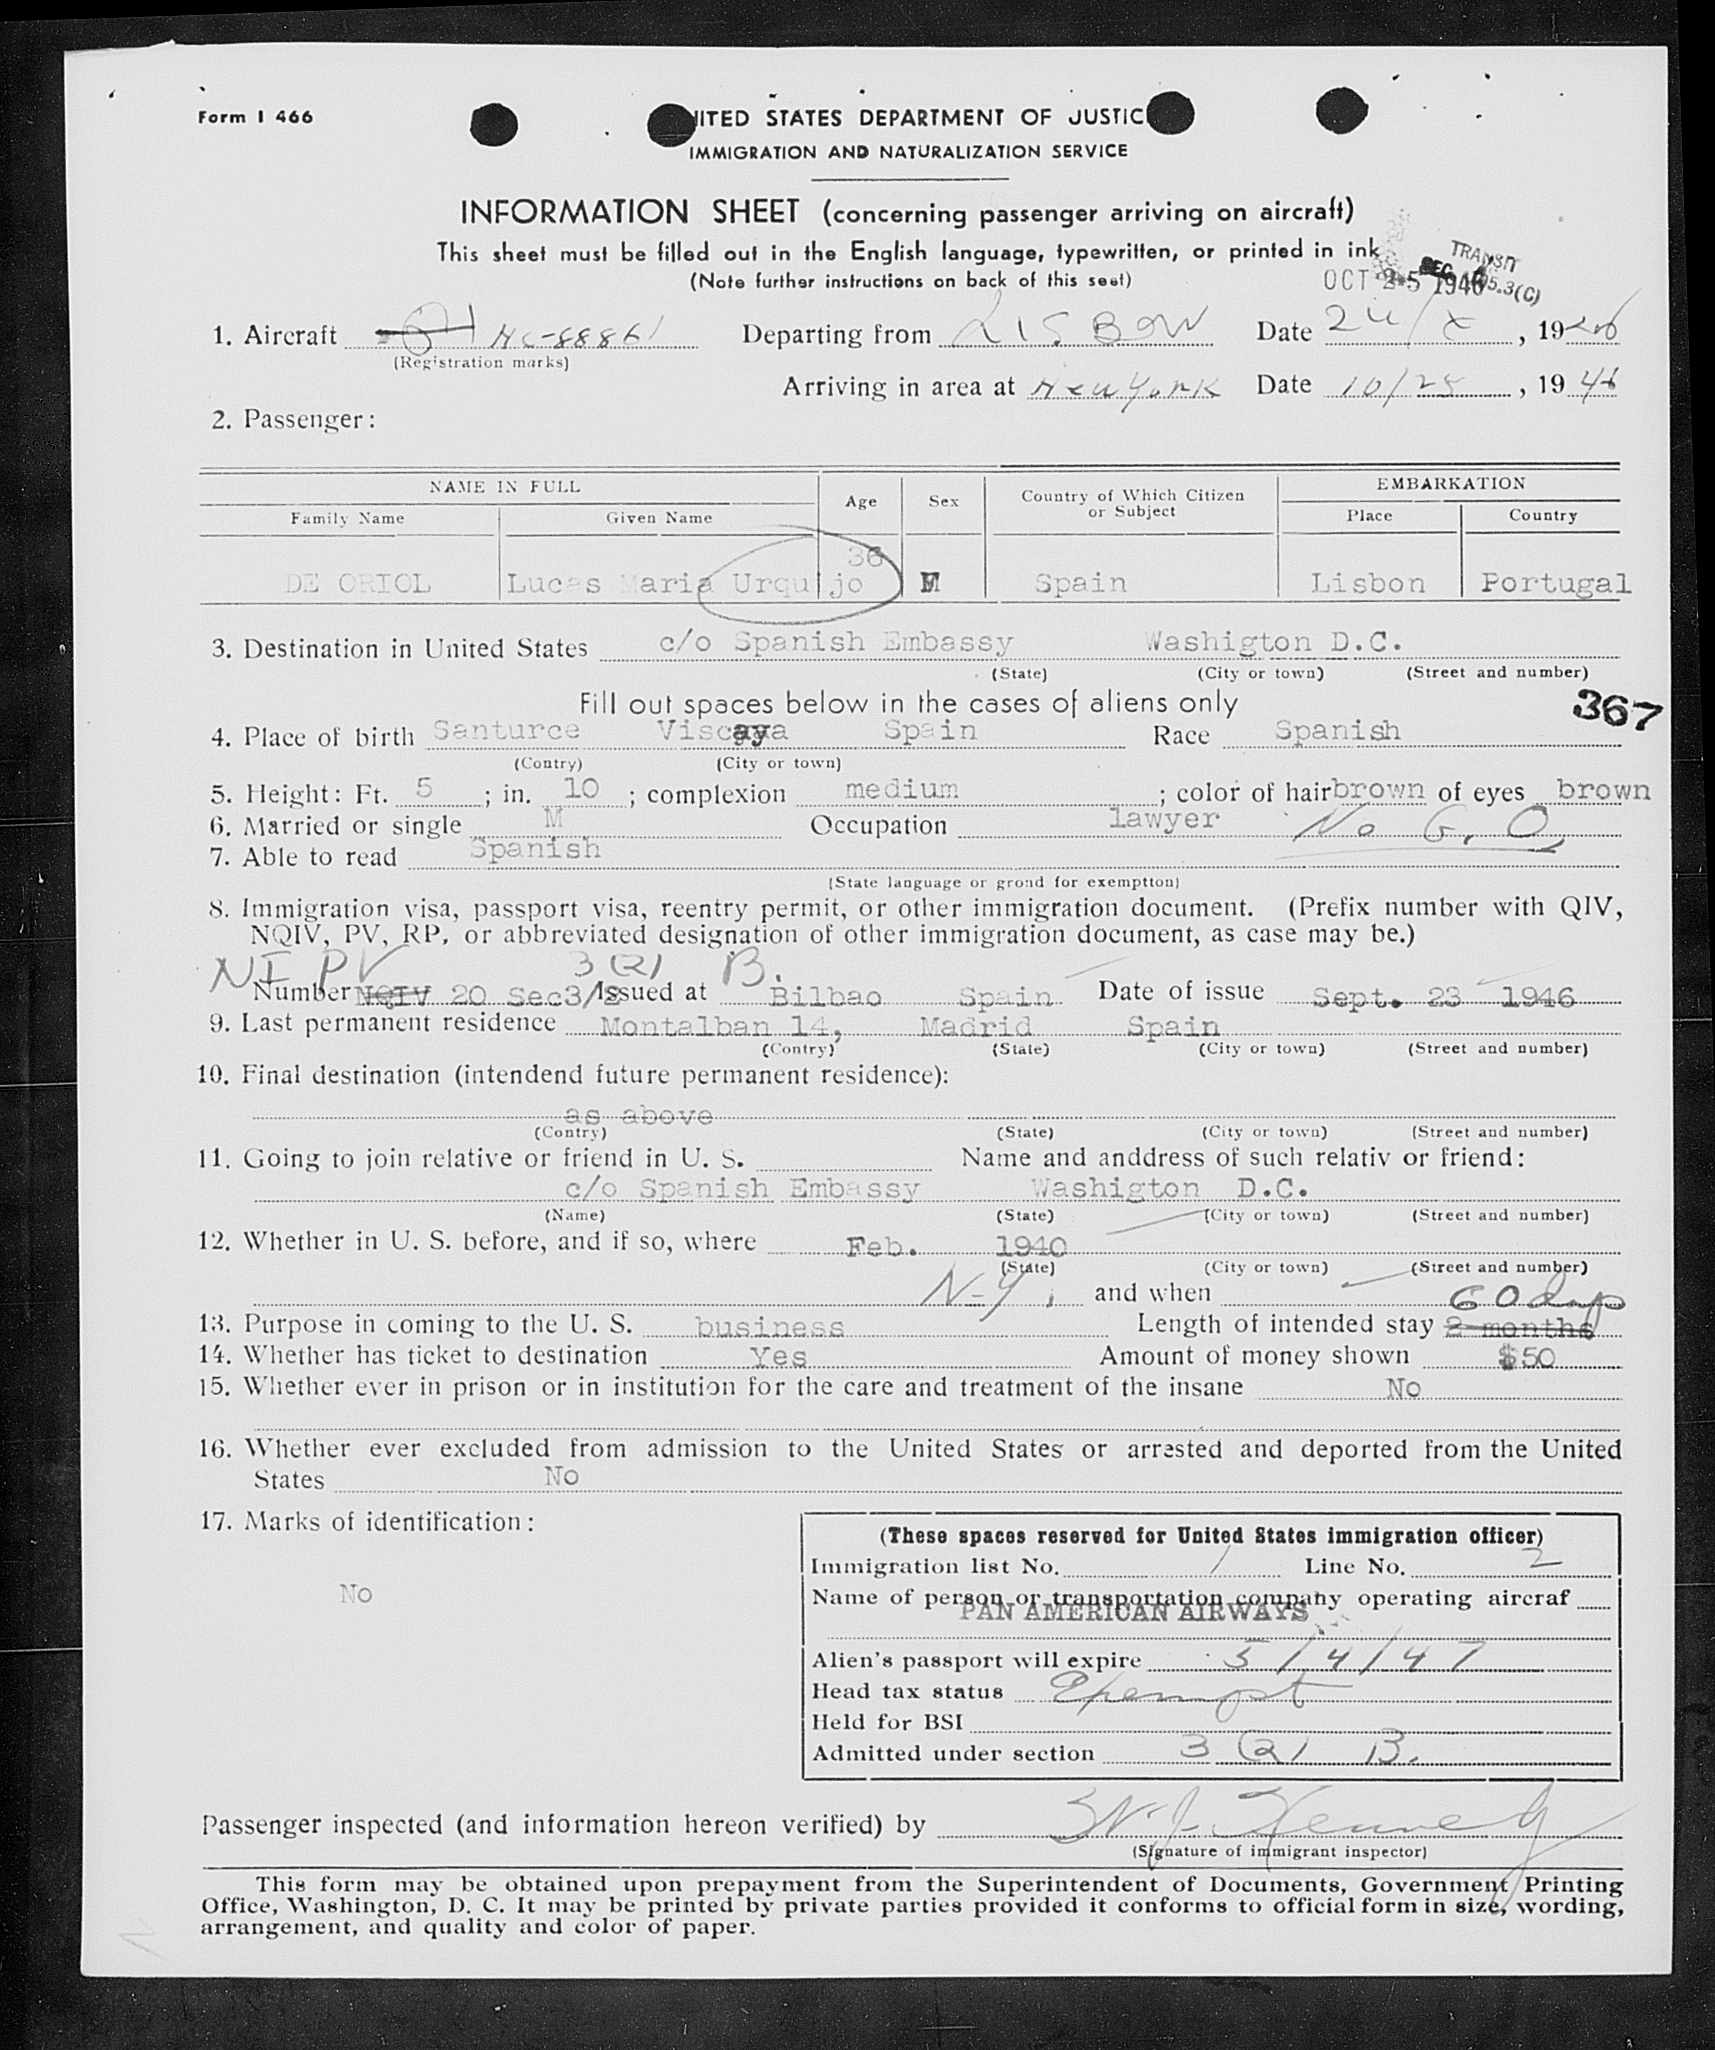 Form I 466
NITED STATES DEPARTMENT OF JUSTIC
IMMIGRATION AND NATURALIZATION SERVICE
INFORMATION SHEET (concerning passenger arriving on aircraft)
This sheet must be filled out in the English language, typewritten, or printed in ink
(Note further instructions on back of this seet)
TRANSIT
OCT 25 1946
1. Aircraft NC-88861 Departing from LISBON Date 24/X, 1946
(Registration marks)
Arriving in area at New York Date 10/25, 1946
2. Passenger:
NAME IN FULL Age Sex Country of Which Citizen or Subject EMBARKATION
Family Name Given Name Place Country
36
DE ORIOL Lucas Maria Urquijo M Spain Lisbon Portugal
3. Destination in United States c/o Spanish Embassy Washigton D.C.
(State) (City or town) (Street and number)
Fill out spaces below in the cases of aliens only
367
4. Place of birth Santurce Viscaya Spain Race Spanish
(Contry) (City or town)
5. Height: Ft. 5; in. 10; complexion medium; color of hair brown of eyes brown
6. Married or single M Occupation lawyer No G. O.
7. Able to read Spanish
(State language or grond for exemptton)
8. Immigration visa, passport visa, reentry permit, or other immigration document. (Prefix number with QIV,
NQIV, PV, RP, or abbreviated designation of other immigration document, as case may be.)
NI PV 3 (2) B.
Number NQIV 20 Sec3/2 Issued at Bilbao Spain Date of issue Sept. 23 1946
9. Last permanent residence Montalban 14, Madrid Spain
(Contry) (State) (City or town) (Street and number)
10. Final destination (intendend future permanent residence):
as above
(Contry) (State) (City or town) (Street and number)
11. Going to join relative or friend in U. S. Name and anddress of such relativ or friend:
c/o Spanish Embassy Washigton D.C.
(Name) (State) (City or town) (Street and number)
12. Whether in U. S. before, and if so, where Feb. 1940
(State) (City or town) (Street and number)
N-Y, and when 60 days
13. Purpose in coming to the U. S. business Length of intended stay 2 months
14. Whether has ticket to destination Yes Amount of money shown $50
15. Whether ever in prison or in institution for the care and treatment of the insane No
16. Whether ever excluded from admission to the United States or arrested and deported from the United
States No
17. Marks of identification:
No
(These spaces reserved for United States immigration officer)
Immigration list No. 1 Line No. 2
Name of person or transportation company operating aircraf
PAN AMERICAN AIRWAYS
Alien's passport will expire 5/4/47
Head tax status Exempt
Held for BSI
Admitted under section 3 (2) B.
Passenger inspected (and information hereon verified) by
(Signature of immigrant inspector)
This form may be obtained upon prepayment from the Superintendent of Documents, Government Printing
Office, Washington, D. C. It may be printed by private parties provided it conforms to official form in size, wording,
arrangement, and quality and color of paper.